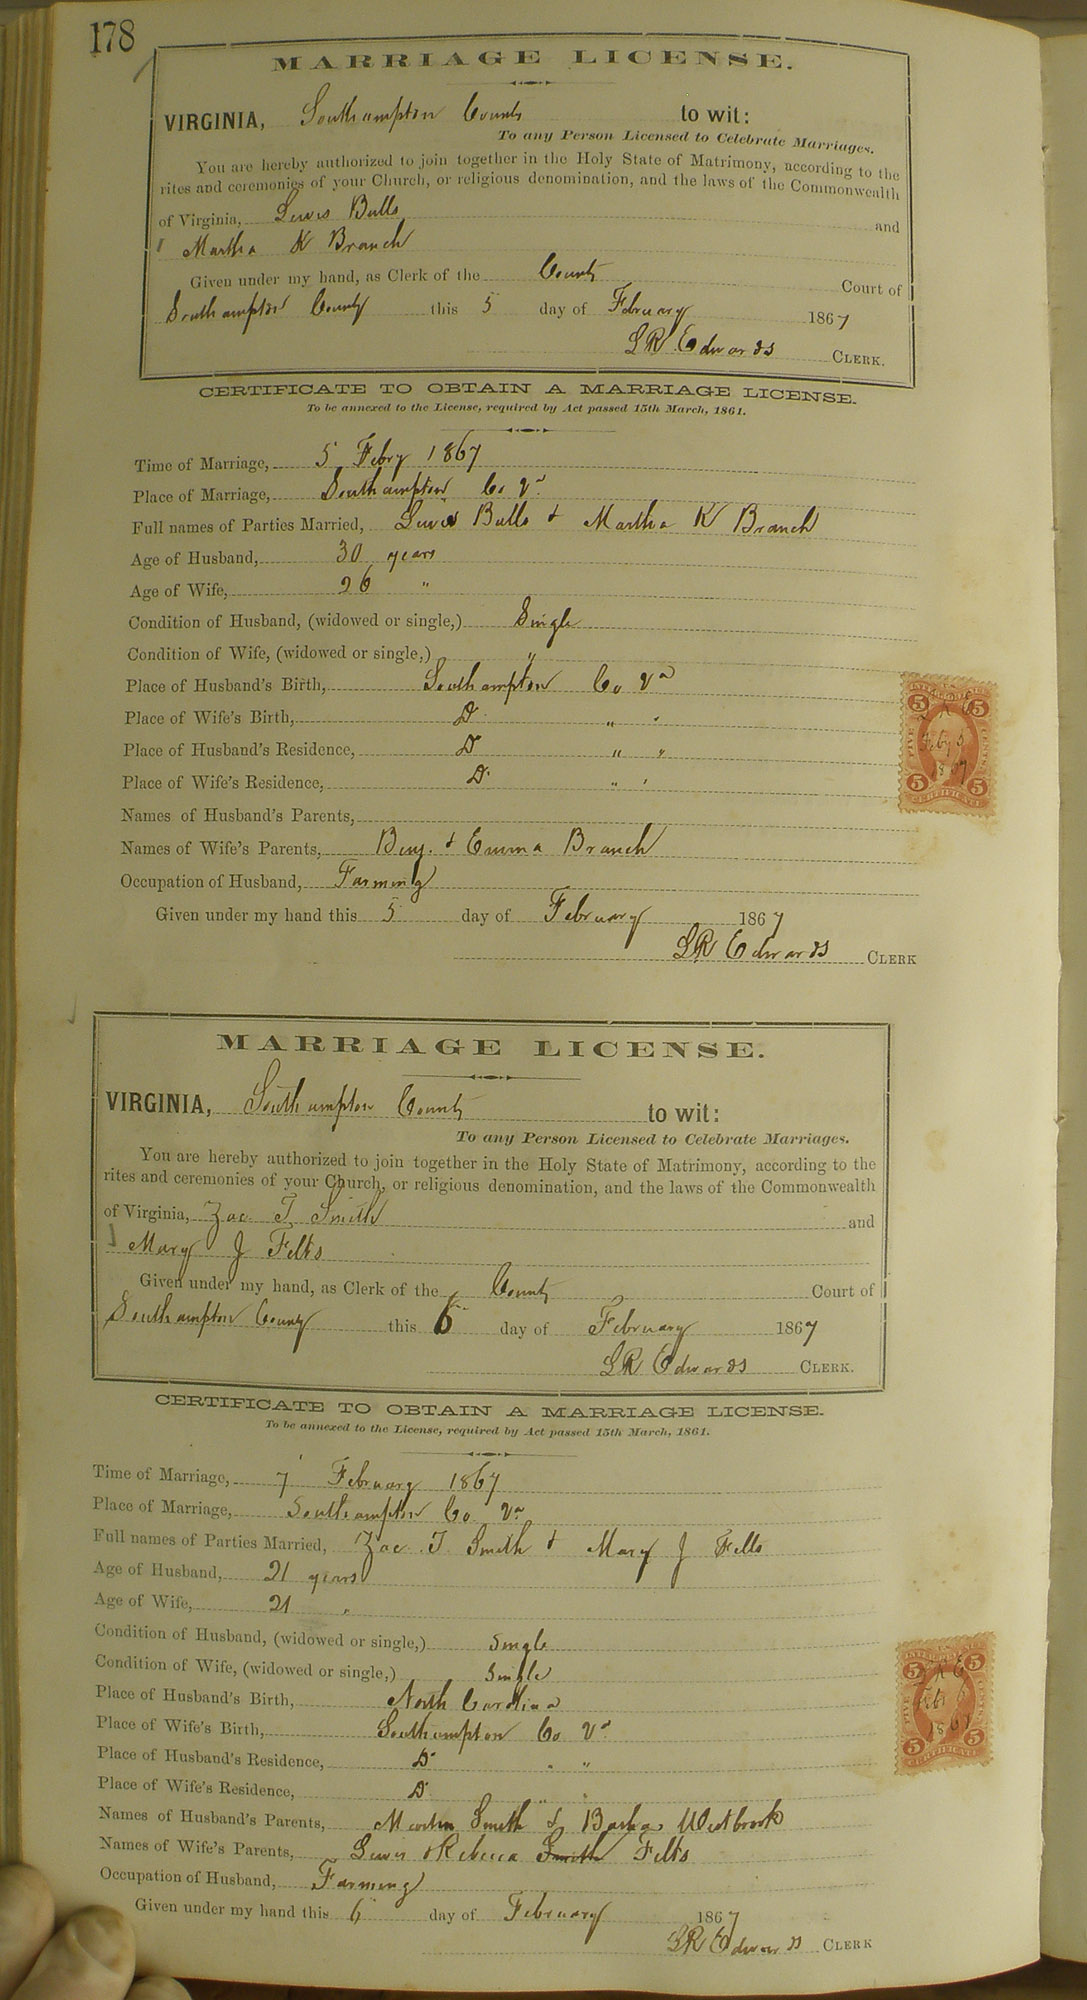 178
MARRIAGE LICENSE.
VIRGINIA, Southampton County to wit:
To any Person Licensed to Celebrate Marriages.
You are hereby authorized to join together in the Holy State of Matrimony, according to the
rites and ceremonies of your Church, or religious denomination, and the laws of the Commonwealth
of Virginia, Lewis Bulls and
Martha K Branch
Given under my hand, as Clerk of the County Court of
Southampton County this 5 day of February 1867
LR Edwards CLERK.
CERTIFICATE TO OBTAIN A MARRIAGE LICENSE.
To be annexed to the License, required by Act passed 15th March, 1861.
Time of Marriage, 5 Febry 1867
Place of Marriage, Southampton Co Va
Full names of Parties Married, Lewis Bulls & Martha K Branch
Age of Husband, 30 years
Age of Wife, 26 "
Condition of Husband, (widowed or single,) Single
Condition of Wife, (widowed or single,) "
Place of Husband's Birth, Southampton Co Va
Place of Wife's Birth, Do " "
Place of Husband's Residence, Do " "
Place of Wife's Residence, Do " "
Names of Husband's Parents,
Names of Wife's Parents, Benj. & Emma Branch
Occupation of Husband, Farming
Given under my hand this 5 day of February 1867
LR Edwards CLERK
5 5
LRE
Feby 5
1867
5 CERTIFICATE 5
MARRIAGE LICENSE.
VIRGINIA, Southampton County to wit:
To any Person Licensed to Celebrate Marriages.
You are hereby authorized to join together in the Holy State of Matrimony, according to the
rites and ceremonies of your Church, or religious denomination, and the laws of the Commonwealth
of Virginia, Zac T Smith and
Mary J Felts
Given under my hand, as Clerk of the County Court of
Southampton County this 6 day of February 1867
LR Edwards CLERK.
CERTIFICATE TO OBTAIN A MARRIAGE LICENSE.
To be annexed to the License, required by Act passed 15th March, 1861.
Time of Marriage, 7 February 1867
Place of Marriage, Southampton Co Va
Full names of Parties Married, Zac T Smith & Mary J Felts
Age of Husband, 21 years
Age of Wife, 21 "
Condition of Husband, (widowed or single,) Single
Condition of Wife, (widowed or single,) Single
Place of Husband's Birth, North Carolina
Place of Wife's Birth, Southampton Co Va
Place of Husband's Residence, Do " "
Place of Wife's Residence, Do " "
Names of Husband's Parents, Smith & Westbrook
Names of Wife's Parents, Lewis & Rebecca Smith Felts
Occupation of Husband, Farming
Given under my hand this 6 day of February 1867
LR Edwards CLERK
5 5
LRE
1867
5 CERTIFICATE 5